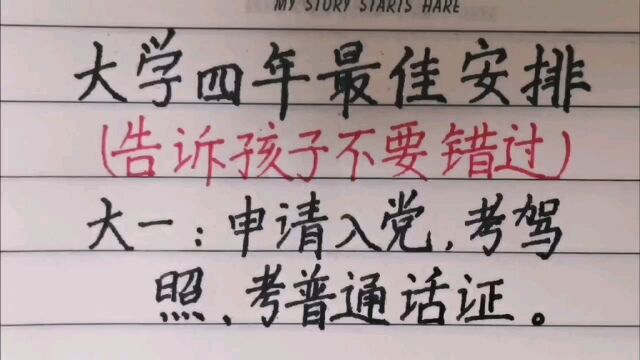 MY STORY STARTS HARE
大学四年最佳安排
(告诉孩子不要错过)
大一:申请入党,考驾
照、考普通话证。